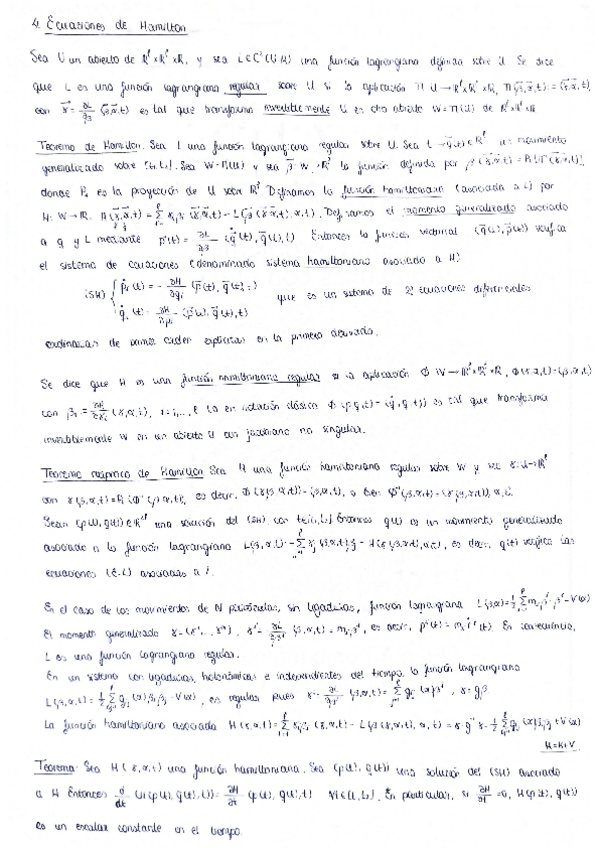 4. Ecuaciones de Hamilton
Sea U un abierto de ℝˡ×ℝˡ×ℝ, y sea L∈C²(U;ℝ) una función lagrangiana definida sobre U. Se dice
que L es una función lagrangiana regular sobre U si la aplicación Π: U→ℝˡ×ℝˡ×ℝ, Π(β,α,t)=(γ,α,t)
con γ = ∂L/∂β (β,α,t) es tal que transforma invertiblemente U en otro abierto W=Π(U) de ℝˡ×ℝˡ×ℝ
Teorema de Hamilton. Sea L una función lagrangiana regular sobre U. Sea t→q(t)∈ℝˡ un movimiento
generalizado sobre [t₁,t₂]. Sea W=Π(U) y sea β: W→ℝˡ la función definida por β(γ,α,t)=P₁(Π⁻¹(γ,α,t)),
donde P₁ es la proyección de U sobre ℝˡ. Definamos la función hamiltoniana (asociada a L) por
H: W→ℝ, H(γ,α,t) = Σ γⱼ βⱼ(γ,α,t) - L(β(γ,α,t),α,t). Definamos el momento generalizado asociado
a q y L mediante p(t) = ∂L/∂β (q̇(t),q(t),t) Entonces la función vectorial (q(t),p(t)) verifica
el sistema de ecuaciones (denominado sistema hamiltoniano asociado a H)
(SH) { ṗᵢ(t) = - ∂H/∂qᵢ (p(t),q(t),t)
q̇ᵢ(t) = ∂H/∂pᵢ (p(t),q(t),t)
que es un sistema de 2l ecuaciones diferenciales
ordinarias de primer orden explícitas en la primera derivada.
Se dice que H es una función hamiltoniana regular si la aplicación Φ: W→ℝˡ×ℝˡ×ℝ, Φ(γ,α,t)=(β,α,t)
con βᵢ = ∂H/∂γᵢ (γ,α,t), i=1,..., l (o en notación clásica Φ(p,q,t)=(q̇,q,t)) es tal que transforma
invertiblemente W en un abierto U con jacobiano no singular.
Teorema recíproco de Hamilton. Sea H una función hamiltoniana regular sobre W y sea γ: U→ℝˡ
con γ(β,α,t)=P₁(Φ⁻¹(β,α,t)), es decir, Φ(γ(β,α,t),α,t)=(β,α,t), o bien Φ⁻¹(β,α,t)=(γ(β,α,t),α,t).
Sean (p(t),q(t))∈ℝ²ˡ una solución del (SH), con t∈[t₁,t₂]. Entonces q(t) es un movimiento generalizado
asociado a la función lagrangiana L(β,α,t) = Σ γⱼ(β,α,t)βⱼ - H(γ(β,α,t),α,t), es decir, q(t) verifica las
ecuaciones (E-L) asociadas a L.
En el caso de los movimientos de N partículas, sin ligaduras, función lagrangiana L(β,α)=½Σ mⱼ βʲ·βʲ - V(α)
El momento generalizado γ=(γ¹,...,γᴺ), γʲ = ∂L/∂βʲ (β,α,t) = mⱼβʲ, es decir, pʲ(t) = mⱼ ṙʲ(t). En consecuencia,
L es una función lagrangiana regular.
En un sistema con ligaduras, holonómicas e independientes del tiempo, la función lagrangiana
L(β,α,t) = ½ Σ gᵢⱼ(α)βᵢβⱼ - V(α), es regular pues γᵢ = ∂L/∂βᵢ (β,α,t) = Σ gᵢⱼ(α)βʲ, γ = gβ
La función hamiltoniana asociada H(γ,α,t) = Σ γⱼβⱼ(γ,α,t) - L(β(γ,α,t),α,t) = γ g⁻¹ γ - ½ Σ gᵢⱼ(α)βᵢβⱼ + V(α)
H=K+V
Teorema: Sea H(γ,α,t) una función hamiltoniana. Sea (p(t),q(t)) una solución del (SH) asociado
a H. Entonces d/dt (H(p(t),q(t),t)) = ∂H/∂t (p(t),q(t),t) ∀t∈[t₁,t₂]. En particular, si ∂H/∂t = 0, H(p(t),q(t))
es un escalar constante en el tiempo.